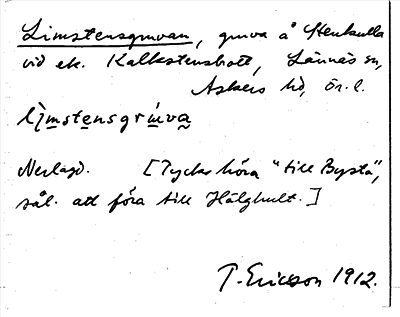 Limstensgruvan, gruva å Stenkulla
vid ek. Kalkstensbrott, Lännäs sn,
Askers hd, Ör. l.
līmstensgrúva
Nedlagd. [Tycks höra "till Bystá",
sål. att föra till Hälghult.]
T. Ericson 1912.